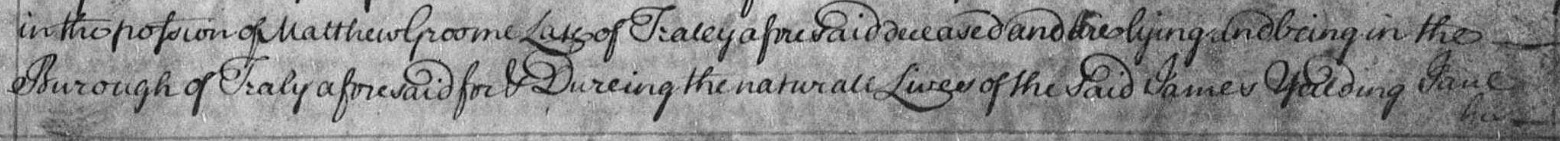 in the possion of Matthew Groome Late of Traley aforesaid deceased and are lying and being in the
Burough of Traly aforesaid for & Dureing the naturall Lives of the Said James Yealding Jane
his